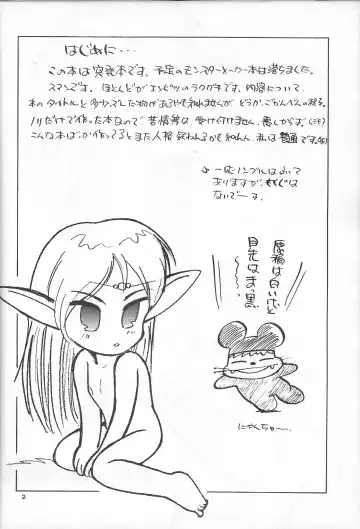 はじめに・・・
この本は突発本です。予定のモンスターメーカー本は落ちました。
スマンです。ほとんどがエンピツのラクガキです。内容について、
本のタイトルと多少ズレた物があるやも知れませんが、どうか、ごかんべんの程を。
ノリだけで作った本なので、苦情等は、受け付けません。悪しからず。
こんな本ばっか作ってるとまた人格疑われるかも知れん。私は普通です。
一応ノンブルはふいて
ありますが、もくじは
ないでーす。
原稿は白いけど
目先はまっ黒
にゃんちゅー
2